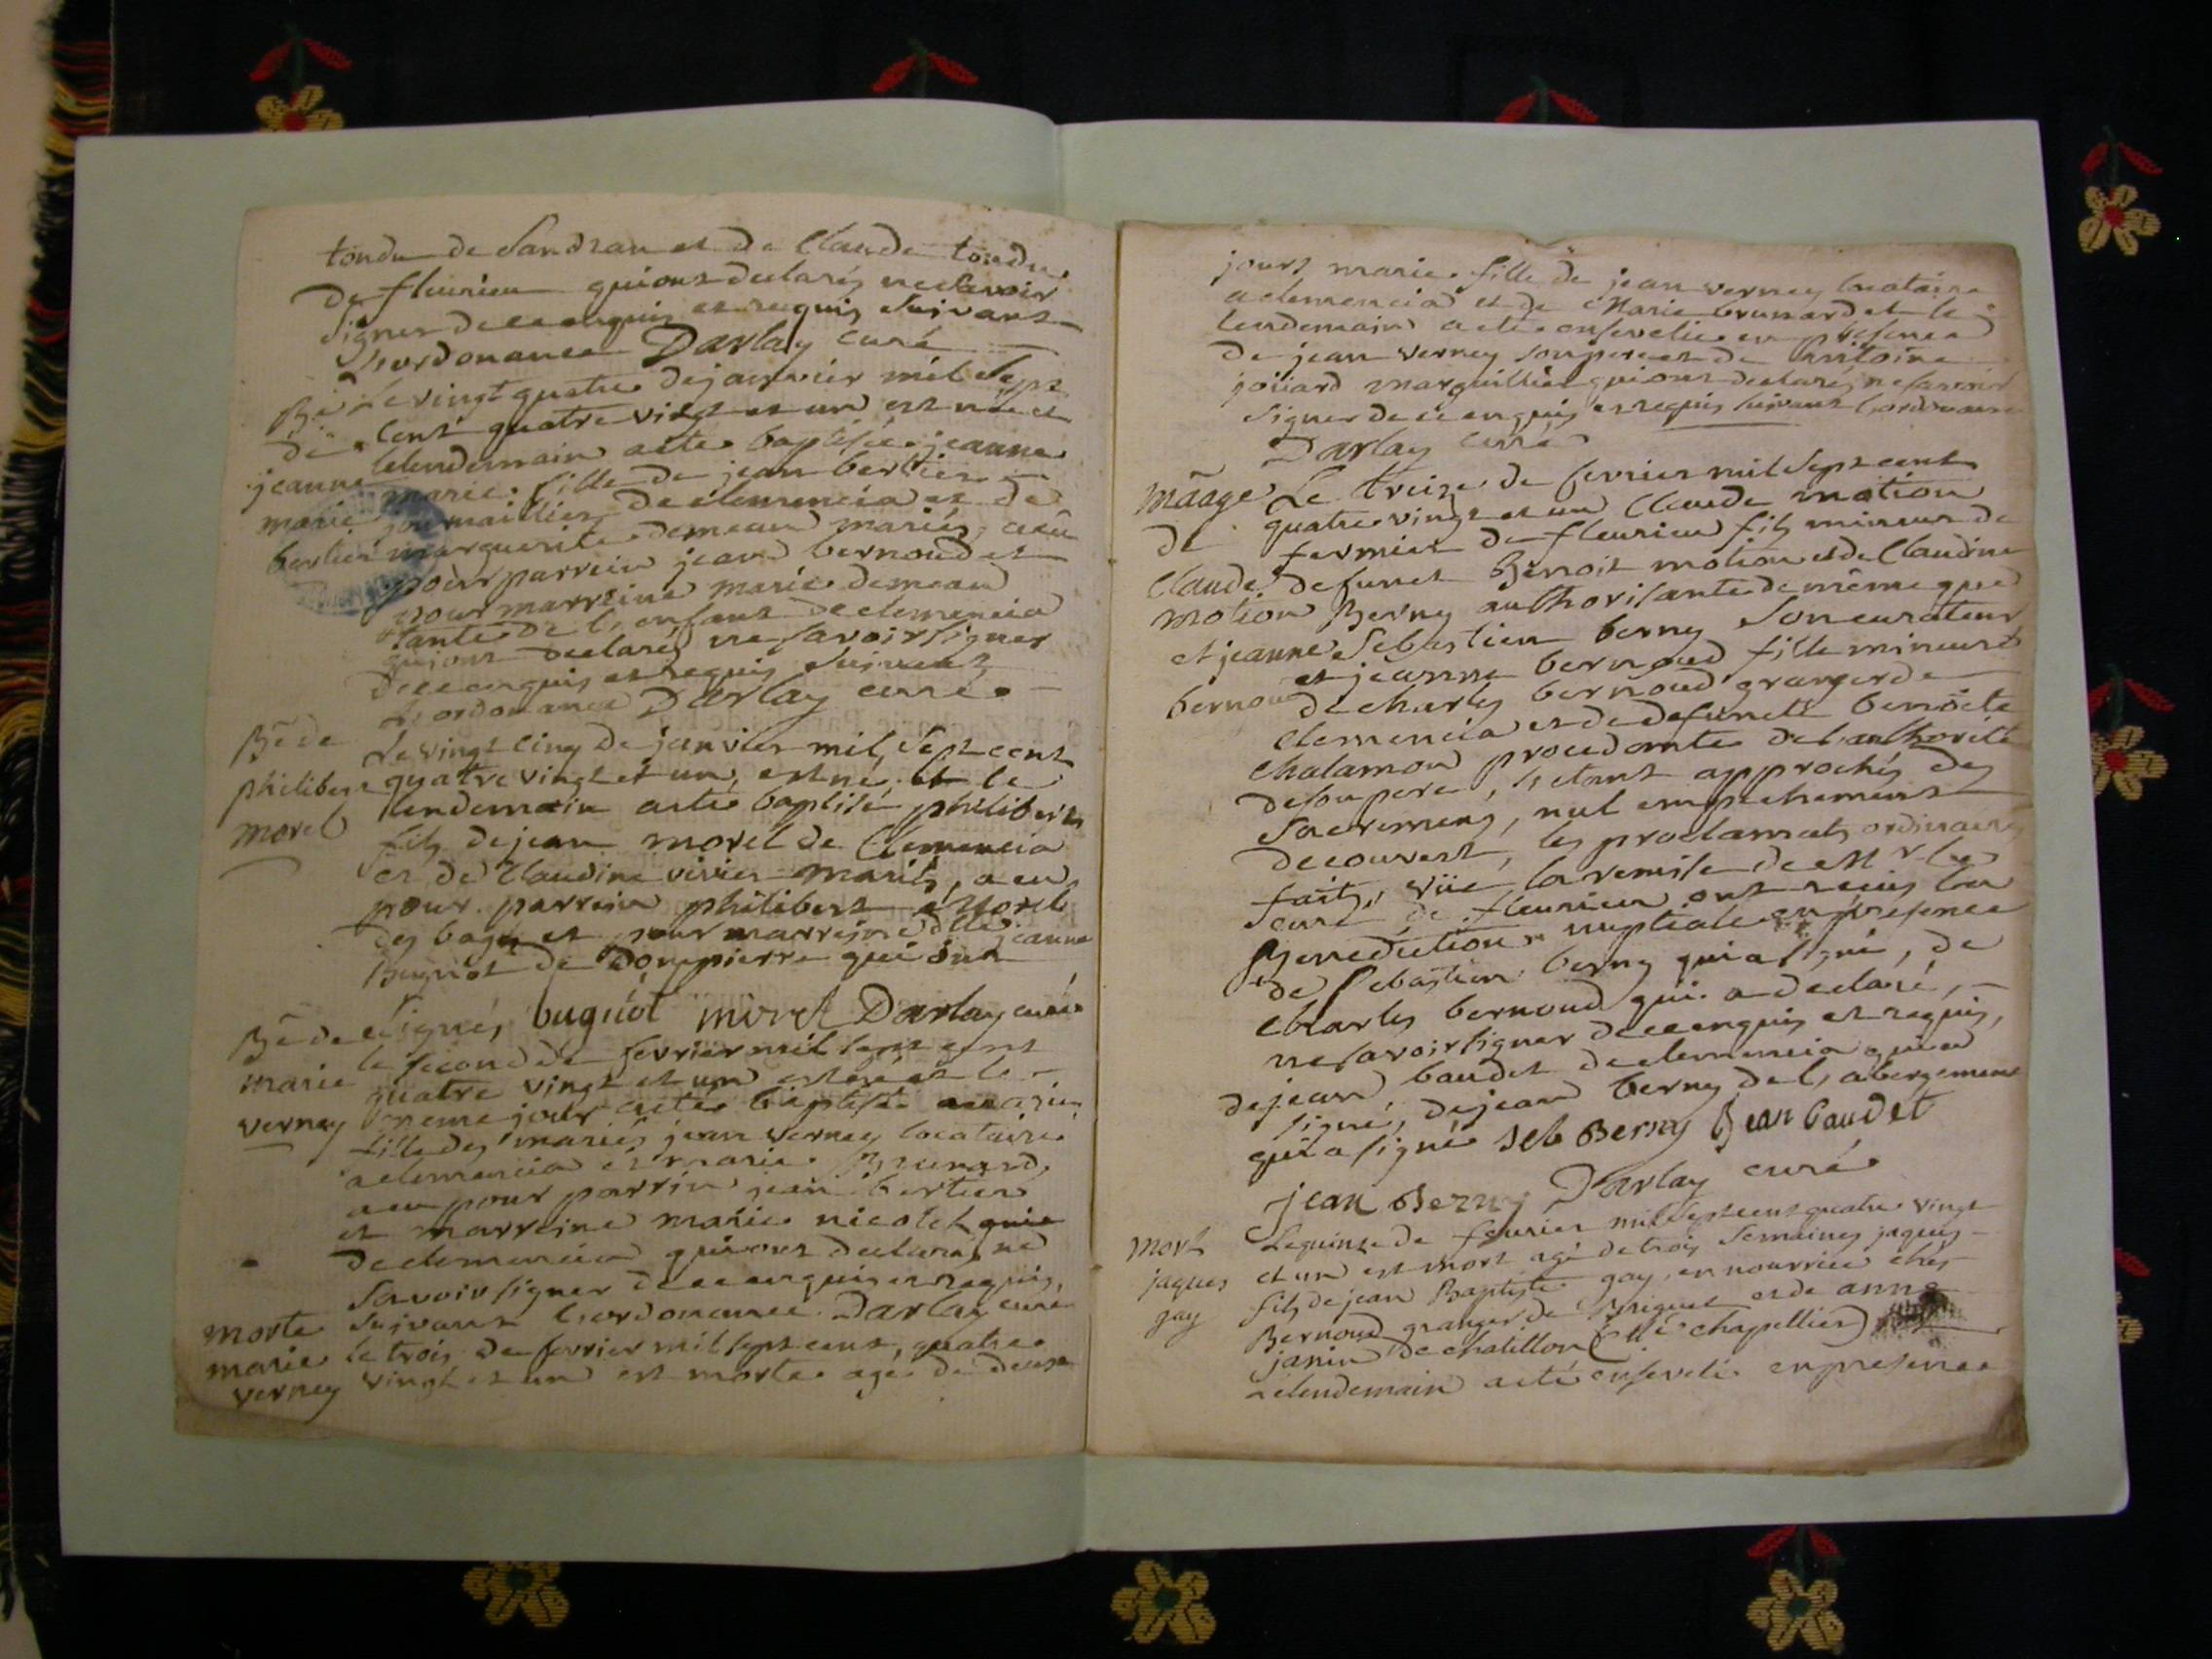 tondu de Sandran et de Claude tondu
de fleurieu qui ont declarés ne savoir
signer de ce enquis et requis suivant
l'ordonance Darlay curé
Bê Le vingt quatre de janvier mil sept
de cent quatre vingt et un est née et
jeanne le lendemain a été baptisée jeanne
marie marie fille de jean bertier
bertier journaillier de clemencia et de
marguerite demeau mariés, a eu
pour parrein jean bernoud et
pour marreine marie demeau
tante de l'enfant de clemencia
qui ont declarés ne savoir signer
de ce enquis et requis suivant
l'ordonance Darlay curé
Bê de Le vingt cinq de janvier mil sept cent
philibert quatre vingt et un, est né et le
morel lendemain a été baptisé philibert
fils de jean morel de Clemencia
et de Claudine vivier mariés, a eu
pour parrein philibert Morel
des bages et pour marreine dlle jeanne
buguiot de Dompierre qui ont
signés, buguiot morel Darlay curé
Bê de le second de fevrier mil sept cent
marie quatre vingt et un est née et le
verney meme jour a été baptisée marie
fille des mariés jean verney locataire
a clemencia et marie Brunard,
a eu pour parrin jean bertier
et marreine marie nicolet
de clemencia qui ont declarés ne
savoir signer de ce enquis et requis,
suivant l'ordonance Darlay curé
morte le trois de fevrier mil sept cent, quatre
marie vingt et un est morte agée de deux
verney
jours marie fille de jean verney locataire
a clemencia et de Marie brunard et le
lendemain a été ensevelie en presence
de jean verney son pere et de Antoine
joüard marguillier qui ont declarés ne savoir
signer de ce enquis et requis suivant l'ordonance
Darlay curé
mâage Le treize de fevrier mil sept cent
de quatre vingt et un Claude motion
Claude fermier de fleurieu fils mineur de
motion defunt Benoit motion et de Claudine
et jeanne Berny authorisante de même que
bernoud Sebastien berny son curateur
et jeanne bernoud fille mineure
de charles bernoud granger de
clemencia et de defuncte benoite
chalamon procedante de l'authorité
de son pere, s'etant approchés des
sacremens, nul empechement
decouvert, les proclamats ordinaires
faits, vüe la remise de Mr le
curé de fleurieu ont reçus la
Benediction nuptiale en presence
de Sebastien berny qui a signé, de
Charles bernoud qui a declaré,
ne savoir signer de ce enquis et requis,
de jean baudet de clemencia qui a
signé, de jean berny de l'abergement
qui a signé Seb Berny Jean baudet
jean Berny Darlay curé
mort Le quinze de fevrier mil sept cent quatre vingt
jaques et un est mort agé de trois semaines jaques
gay fils de jean Baptiste gay, en nourrice chés
Bernoud granger de et de anne
janin de chatillon chapellier)
le lendemain a été enseveli en presence